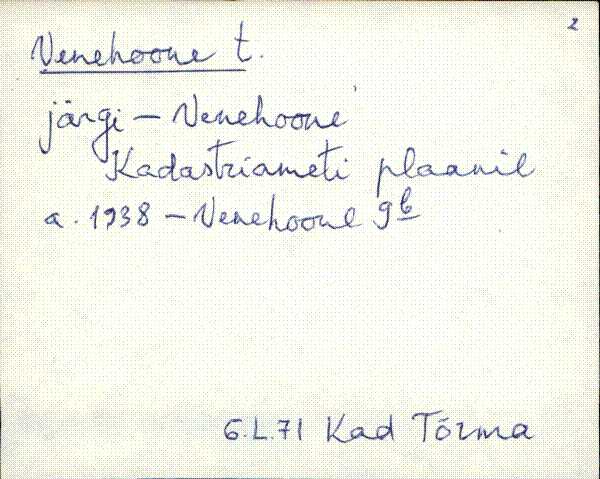 2
Venehoone t.
järgi – Venehoone
Kadastriameti plaanil
a. 1938 – Venehoone 9b
6.L.71 Kad Tõrma